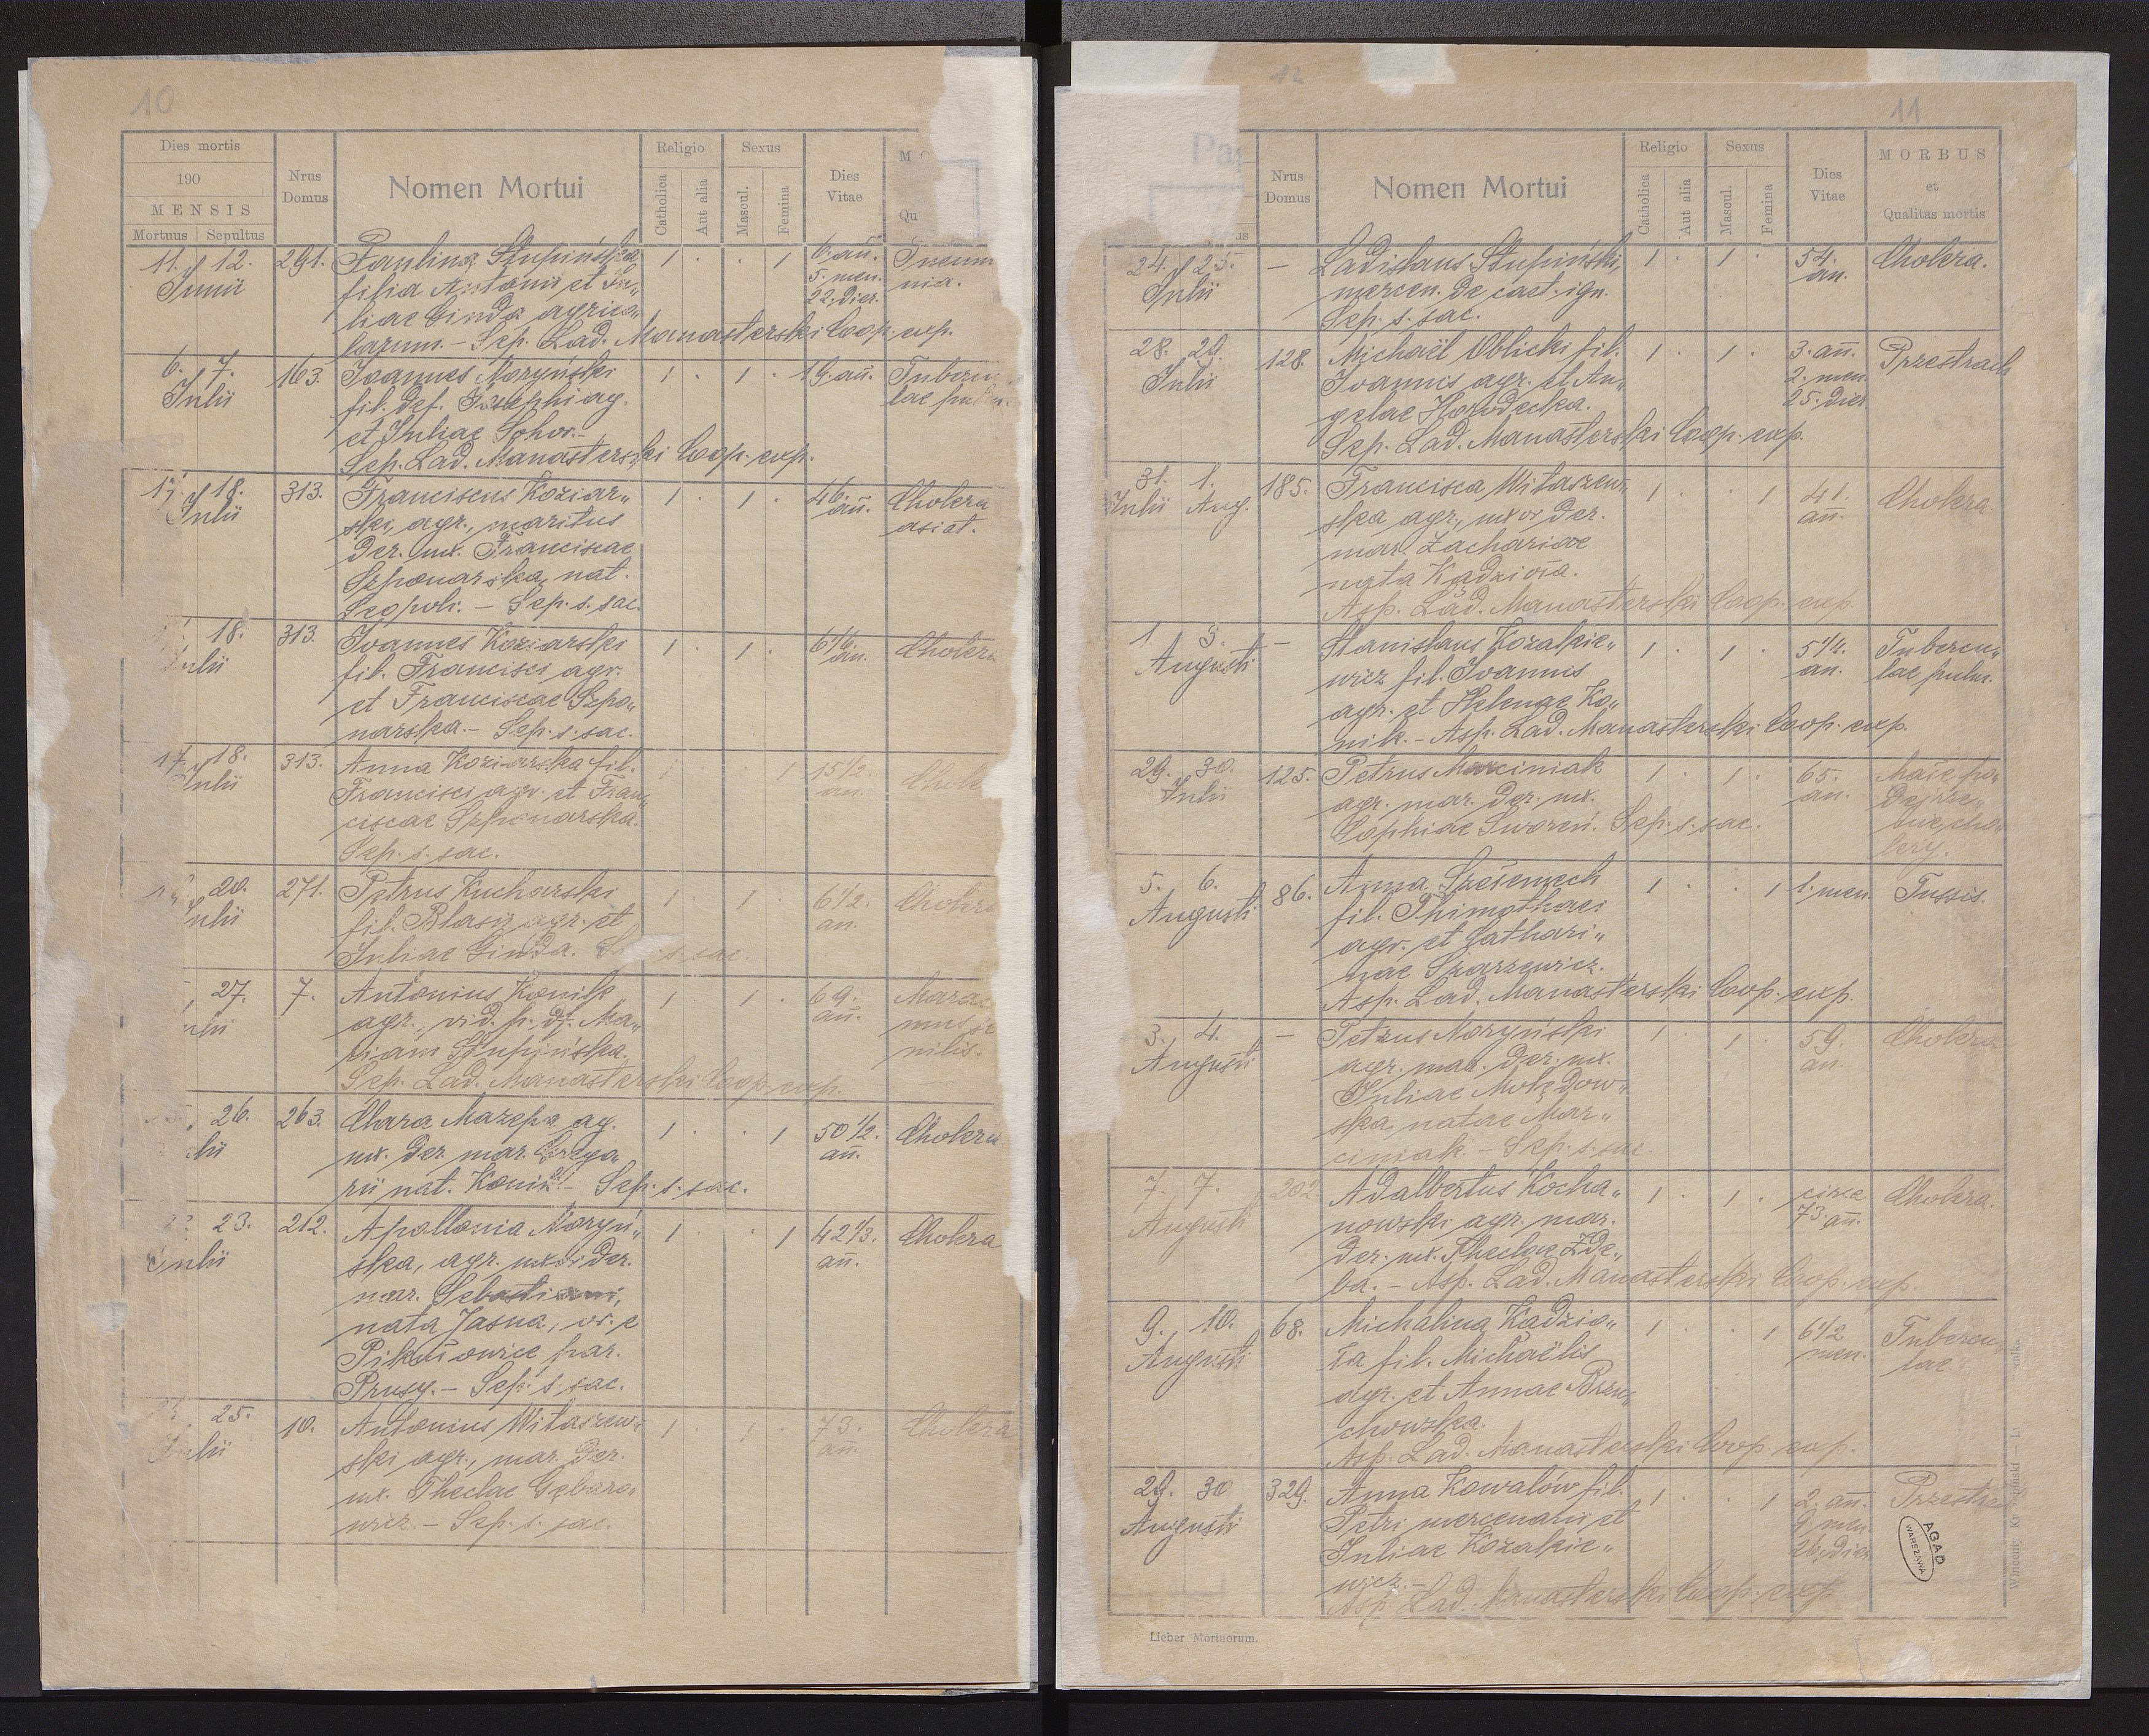 10
Dies mortis
190
MENSIS
Mortuus Sepultus
Nrus Domus
Nomen Mortui
Religio
Catholica
Aut alia
Sexus
Mascul.
Femina
Dies Vitae
M O
Qu
11. 12. 291. Paulina Stupińska 1 · · 1 6. an̄. Pneum
Junii filia Antonii et Ju„ 5. men. nia.
liae Ginda agrico„ 22. dier.
larum. – Sep. Lad. Manasterski Coop. exp.
6. 7. 163. Joannes Moryński 1 · 1 · 19. an̄. Tubercu
Julii fil. def. Josephi ag. lae pulm.
et Juliae Sohor.
Sep. Lad. Manasterski Coop. exp.
17. 18. 313. Franciscus Koziar„ 1 · 1 · 46. an̄. Cholera
Julii ski, agr., maritus asiat.
der. ux. Franciscae
Szponarska, nat.
Leopoli. – Sep. s. sac.
18. 313. Joannes Koziarski 1 · 1 · 6 1/6 an. Cholera
Julii fil. Francisci agr.
et Franciscae Szpo„
narska. – Sep. s. sac.
17. 18. 313. Anna Koziarska fil. 1 · · 1 15 1/2. an. Chole
Julii Francisci agr. et Fran„
ciscae Szponarska.
Sep. s. sac.
20. 271. Petrus Kucharski 1 · 1 · 6 1/2. an. Cholera
Julii fil. Blasii agr. et
Juliae Ginda. s. sac.
27. 7. Antonius Konik 1 · 1 · 69. an̄. Maras
agr., vid. p. df. Ma„ mus se
riam Stupińska. nilis.
Sep. Lad. Manasterski Coop. exp.
26. 263. Clara Mazepa ag. 1 · · 1 50 1/2. an̄. Cholera
lii ux. der. mar. Grego„
rii nat. Konik – Sep. s. sac.
23. 212. Apollonia Moryń„ 1 · · 1 42 1/3. an̄. Cholera
Julii ska, agr. uxor der.
mar. Sebastiani,
nata Jasna, or. e
Pikułowice par.
Prusy. – Sep. s. sac.
25. 10. Antonius Witaszew„ 1 · 1 · 73. an. Cholera
Julii ski agr., mar. der.
ux. Theclae Gębaro„
wicz. – Sep. s. sac.
12
11
Par
Nrus Domus
Nomen Mortui
Religio
Catholica
Aut alia
Sexus
Mascul.
Femina
Dies Vitae
MORBUS
et
Qualitas mortis
24. 25. – Ladislaus Stupiński, 1 · 1 · 54. an. Cholera.
Julii mercen. de caet. ign.
Sep. s. sac.
28. 29. 128. Michaël Oblicki fil. 1 · 1 · 3. an̄. Przestrach
Julii Joannis agr. et An„ 2. men.
gelae Horodecka. 25. dier.
Sep. Lad. Manasterski Coop. exp.
31. 1. 185. Francisca Witaszew„ 1 · · 1 41. an̄. Cholera
Julii Aug. ska agr., uxor der.
mar. Zachariae
nata Kądzioła.
Asp. Lad. Manasterski Coop. exp.
1. 3. – Stanislaus Kozakie„ 1 · 1 · 5 1/4. an. Tubercu„
Augusti wicz fil. Joannis lae pulm.
agr. et Helenae Ko„
nik. – Asp. Lad. Manasterski Coop. exp.
29. 30. 125. Petrus Marciniak 1 · 1 · 65. an.
Julii agr. mar. der. ux.
Sophiae Sworeń. Sep. s. sac.
5. 6. 86. Anna 1 · · 1 1. men. Tussis.
Augusti fil. Thimothaei
agr. et Cathari„
nae Szarzewicz.
Asp. Lad. Manasterski Coop. exp.
3. 4. – Petrus Moryński 1 · 1 · 59. an. Cholera
Augusti agr. mar. der. ux.
Juliae Mołędow„
ska natae Mar„
ciniak. – Sep. s. sac.
7. 7. 202. Adalbertus Kocha„ 1 · 1 · circe 73 an̄. Cholera.
Augusti nowski agr. mar.
der. ux. Theclae Zde„
ba. – Asp. Lad. Manasterski Coop. exp.
9. 10. 68. Michalina Kądzio„ 1 · · 1 6 1/2 men. Tubercu„
Augusti ła fil. Michaëlis lae
agr. et Annae Brzu„
chowska.
Asp. Lad. Manasterski Coop. exp.
29. 30 329. Anna Kowalów fil. 1 · · 1 2. an̄. Przestra
Augusti Petri mercenarii et 9. men.
Juliae Kozakie„ 26. dier.
wicz. –
Asp. Lad. Manasterski Coop. exp.
Lieber Mortuorum.
AGAD
WARSZAWA